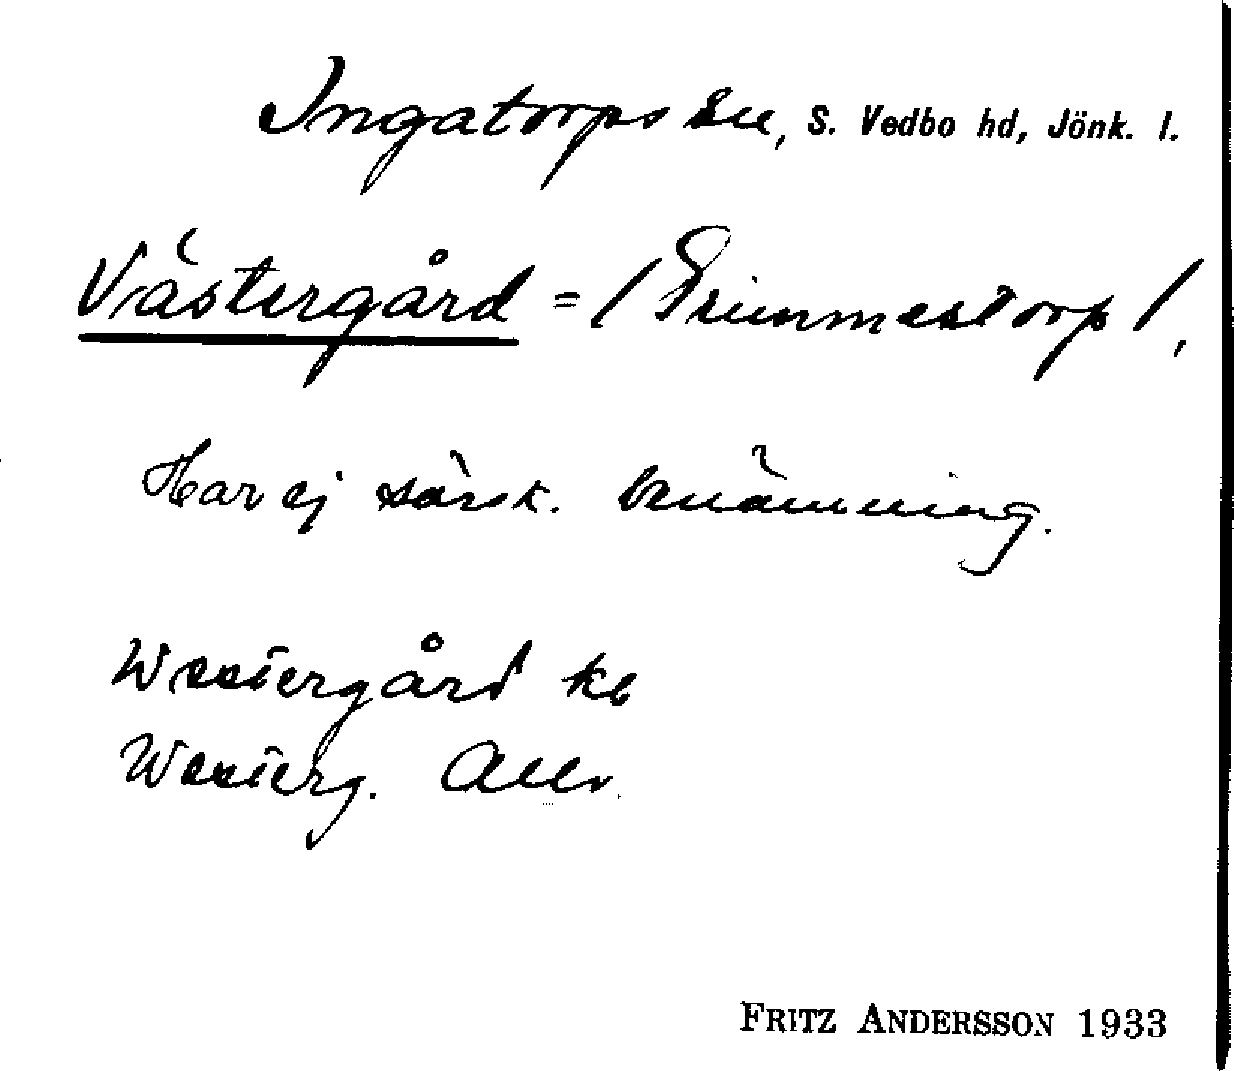 Ingatorps sn, S. Vedbo hd, Jönk. l.
Västergård = / Grimmestorp /,
Har ej särsk. benämning.
Westergård kb
Westerg.
FRITZ ANDERSSON 1933